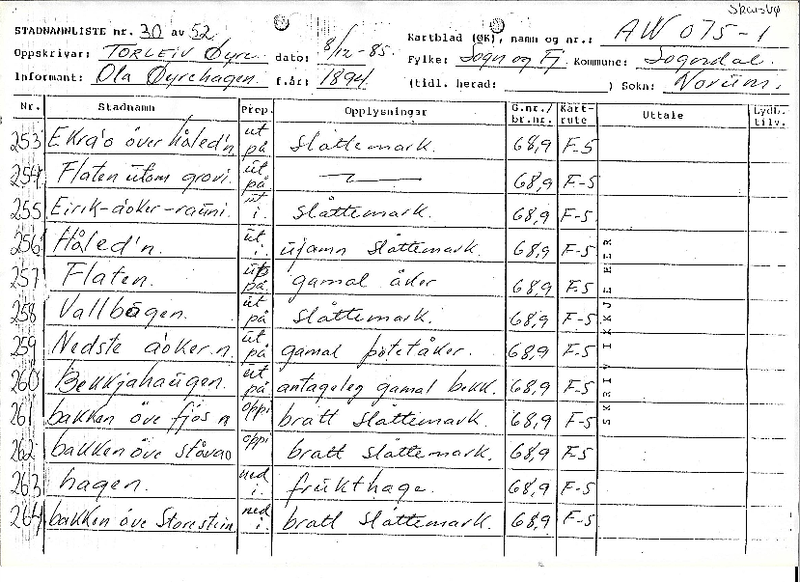 STADNAMNLISTE nr. 30 av 52
Oppskrivar: TORLEIV Øyre dato: 8/12-85.
Informant: Ola Øyrehagen. f.år: 1894.
Kartblad (ØK), namn og nr.: AW 075-1
Fylke: Sogn og Fj. Kommune: Sogndal.
(tidl. herad: ) Sokn: Norum.
Nr. Stadnamn Prep. Opplysningar G.nr./br.nr. Kartrute Uttale Lydb. tilv.
253 Ekra'o över håled'n ut på slåttemark. 68,9 F-5
254 Flaten utom grovi. ut på 68,9 F-5
255 Eirik-åoker-rauni. ut i. slåttemark. 68,9 F-5
256 Håled'n. ut i. ujamn slåttemark. 68,9 F-5
257 Flaten. på gamal åker 68,9 F-5
258 Vallbøgen. ut på slåttemark. 68,9 F-5
259 Nedste åoker.n. ut på gamal potetåker. 68,9 F-5
260 Bekkjahaugen. ut på antageleg gamal bekk. 68,9 F-5
261 bakken öve fjös n oppi bratt slåttemark. 68,9 F-5
262 bakken öve ståvao oppi bratt slåttemark. 68,9 F-5
263 hagen. ned i. frukthage. 68,9 F-5
264 bakken öve Storestein ned i. bratt slåttemark. 68,9 F-5
SKRIV IKKJE HER